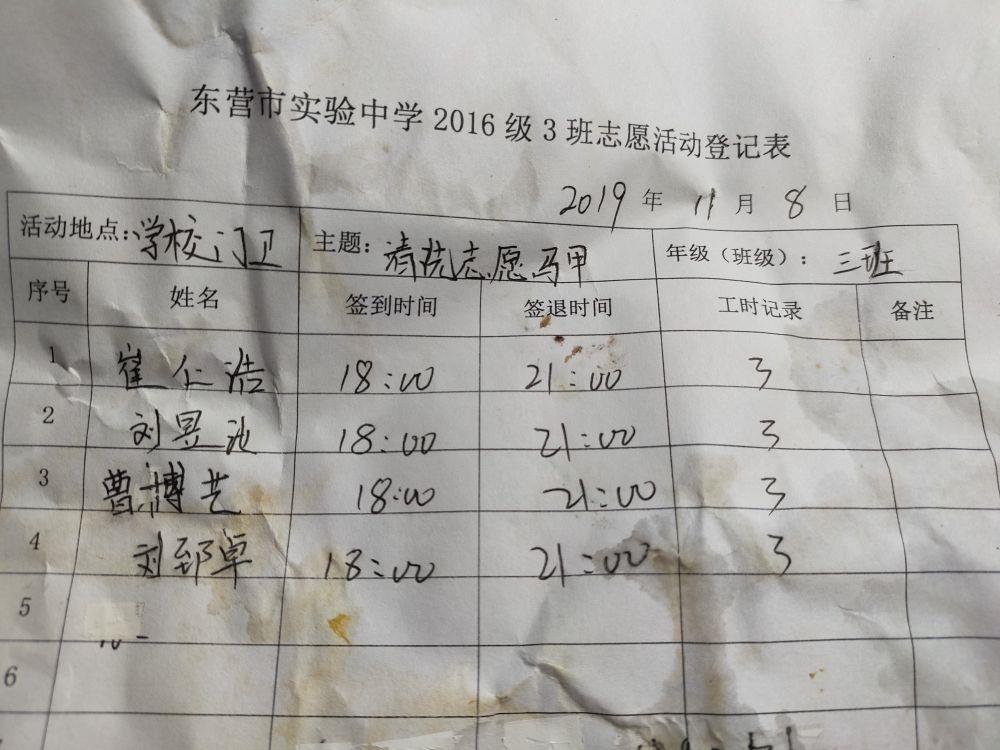 东营市实验中学2016级3班志愿活动登记表
2019年 11月 8日
活动地点：学校门卫 主题：清洗志愿马甲 年级（班级）：三班
序号 姓名 签到时间 签退时间 工时记录 备注
1 崔仁浩 18:00 21:00 3
2 刘昱 18:00 21:00 3
3 曹博艺 18:00 21:00 3
4 刘郅卓 18:00 21:00 3
5
6